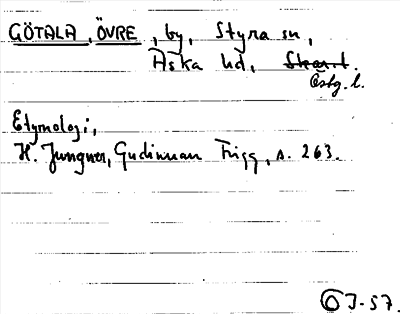 GÖTALA, ÖVRE, by, Styra sn,
Aska hd, Skar.l.
Östg. l.
Etymologi,
H. Jungner, Gudinnan Frigg, s. 263.
J-57.